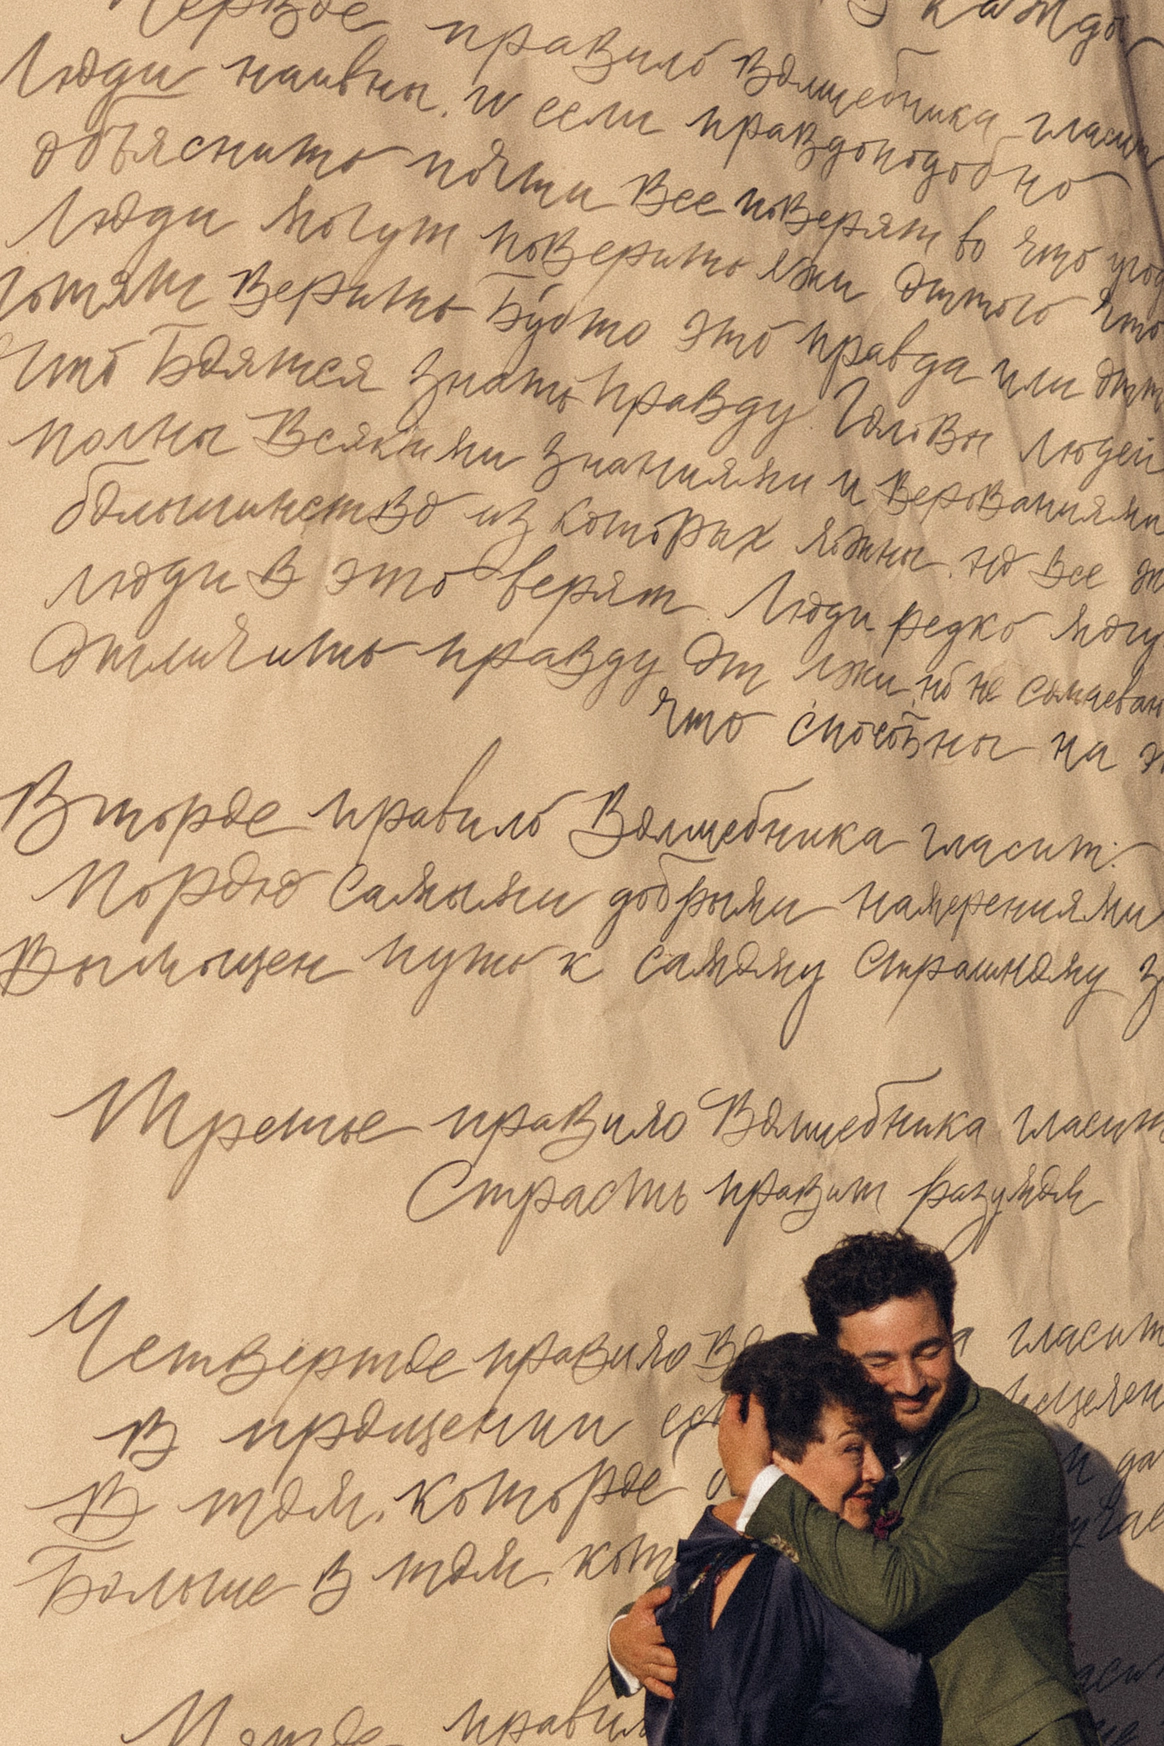 Первое правило Волшебника гласит
Люди наивны. и если правдоподобно
объяснить почти все поверят во что угод
Люди могут поверить лжи оттого что
хотят верить будто это правда или отт
что боятся знать правду. Головы людей
полны всякими знаниями и верованиями
большинство из которых ложны. но все
люди в это верят. Люди редко могу
отличить правду от лжи, но не сомневаю
что способны на э
Второе правило Волшебника гласит:
Порою самыми добрыми намерениями
вымощен путь к самому страшному з
Третье правило Волшебника гласит
Страсть правит разумом
Четвертое правило гласит
в прощении
в том, которое
больше в том,
правил